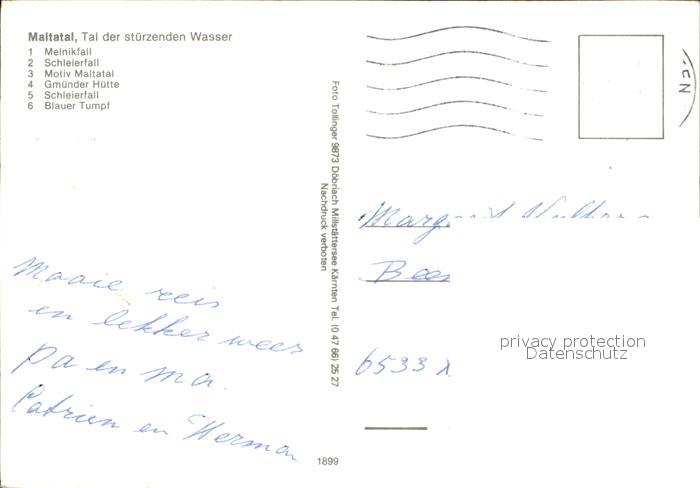 Maltatal, Tal der stürzenden Wasser
1 Melnikfall
2 Schleierfall
3 Motiv Maltatal
4 Gmünder Hütte
5 Schleierfall
6 Blauer Tumpf
Mooie reis
en lekker weer
Pa en Ma.
Catrien en Herman
Foto Tollinger 9873 Döbriach Millstättersee Kärnten Tel. (0 47 66) 25 27
Nachdruck verboten
1899
6533
privacy protection
Datenschutz